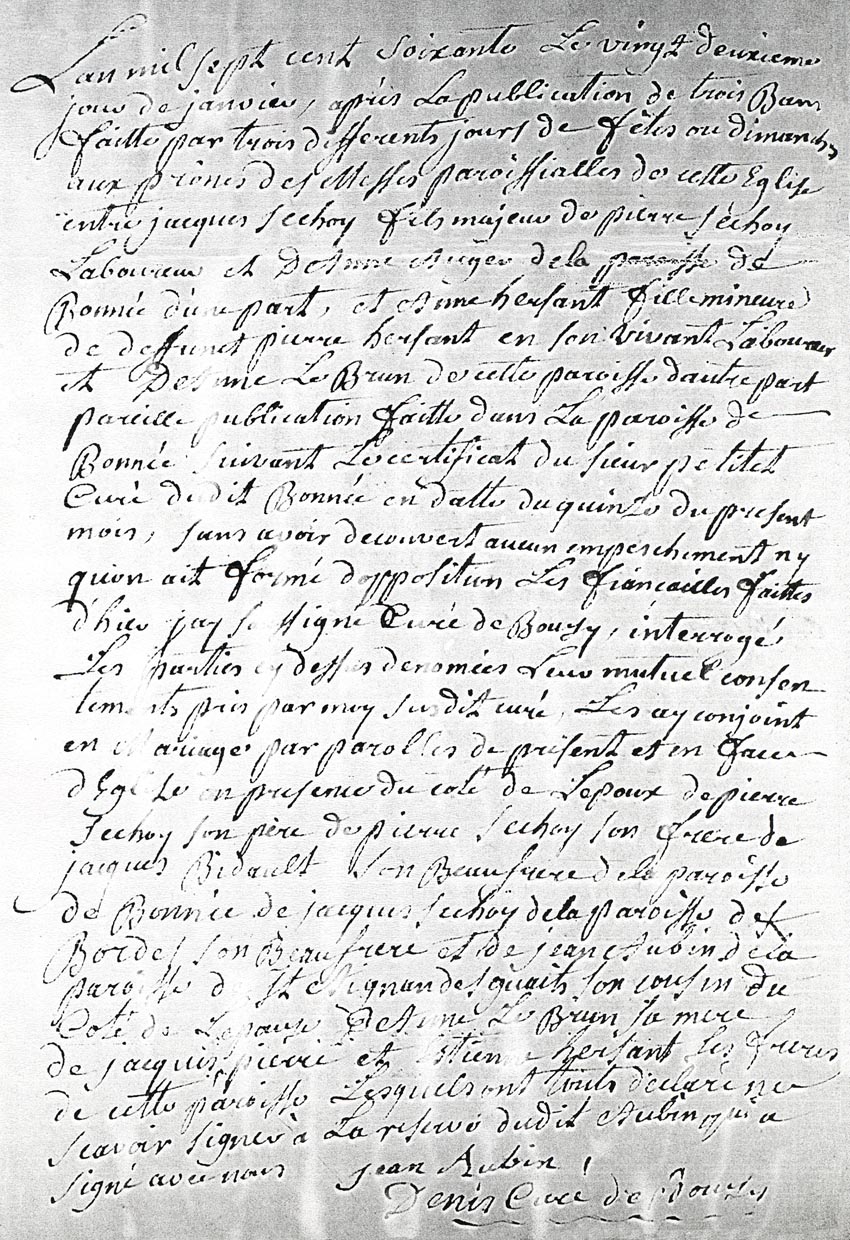 Lan mil sept cent soixante Le vingt deuxieme
jour de janvier, après La publication de trois Bans
faitte par trois differents jours de fêtes ou dimanches
aux prônes des Messes paroissialles de cette Eglise
entre jacques sechoy fils majeur de pierre sechoy
Laboureur et DeAnne Auger de la paroisse de
Bonnée d'une part, et Anne hersant fille mineure
de deffunct pierre hersant en son vivant Laboureur
et DeAnne Le Brun de cette paroisse dautre part
pareille publication faitte dans La paroisse de
Bonnée suivant Le certificat du sieur petitet
Curé dudit Bonnée en datte du quinze du present
mois, sans avoir decouvert aucun empeschement ny
quon ait formé dopposition Les fiancailles faittes
d'hier jay soussigné Curé de Bouzy, interrogé
Les parties cy dessus denomées Leur mutuel consen
tements pris par moy susdit curé, Les ay conjoint
en Mariage par parolles de présent et en face
d'Eglise en presence du coté de Lepoux de pierre
Sechoy son père de pierre sechoy son frere de
jacques Bidault son Beaufrere de la paroisse
de Bonnée de jacques sechoy de la paroisse des
Bordes son Beaufrere et de jean Aubin de la
paroisse de St Aignan des guaits son cousin du
Coté de Lepouse DeAnne Le Brun sa mere
de jacques, pierre et Estienne hersant ses freres
de cette paroisse Lesquels ont touts declaré ne
scavoir signer à La reserve dudit Aubin qui a
signé avec nous jean Aubin
Denis Curé de Bouzy